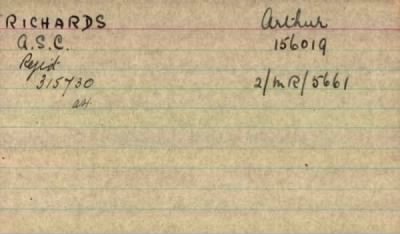 RICHARDS Arthur
A.S.C. 156019
Regt
315730 2/MR/5661